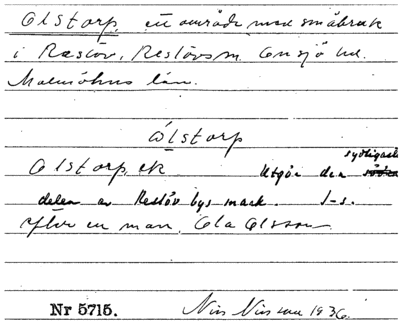 Olstorp, ett område med småbruk
i Reslöv, Reslövs sn. Onsjö hd.
Malmöhus län.
Ålstorp
Olstorp, ek Utgör den sydligaste
delen av Reslöv bys mark. J-s.
efter en man, Ola Olsson
Nr 5715. Nils Nilsson 1936.